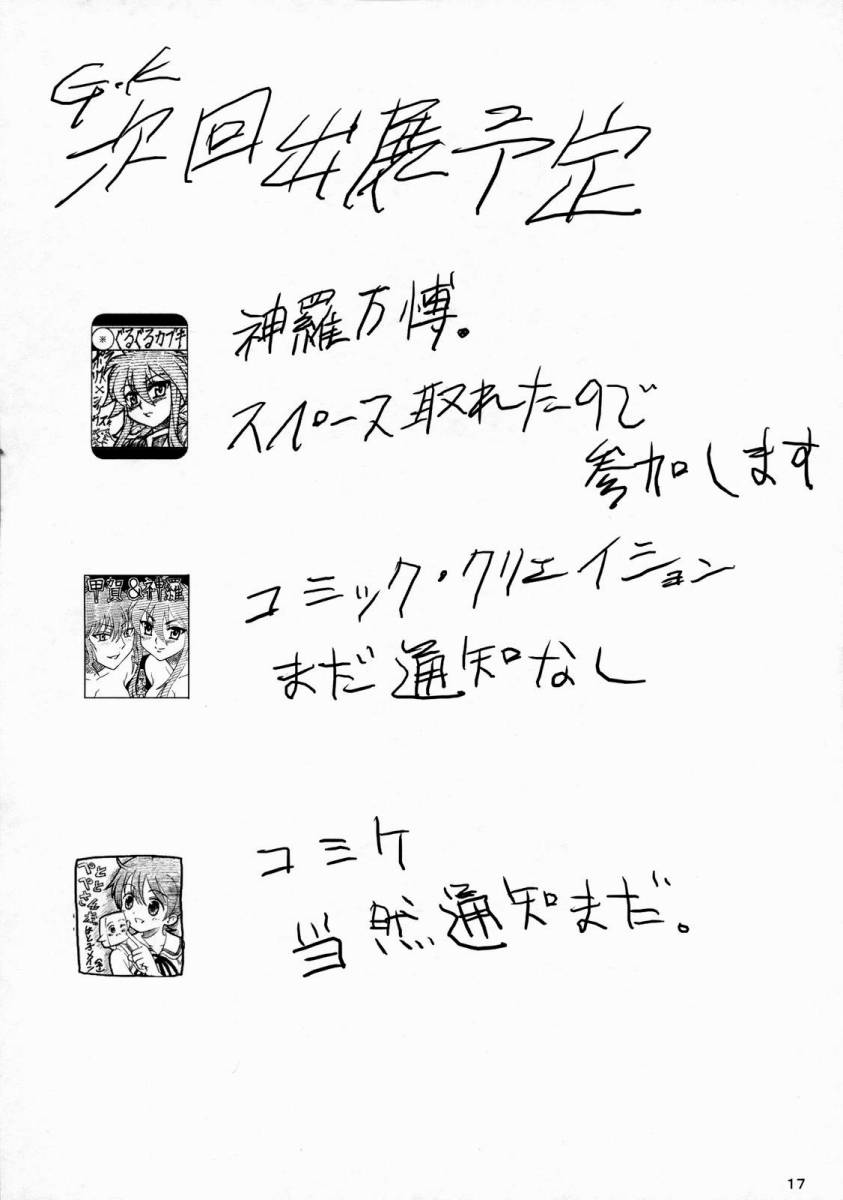 G.K
次回出展予定
神羅万博。
スペース取れたので
参加します
※ぐるぐるカブキ
コミック・クリエイション
まだ通知なし
甲賀&神羅
コミケ
当然通知まだ。
17